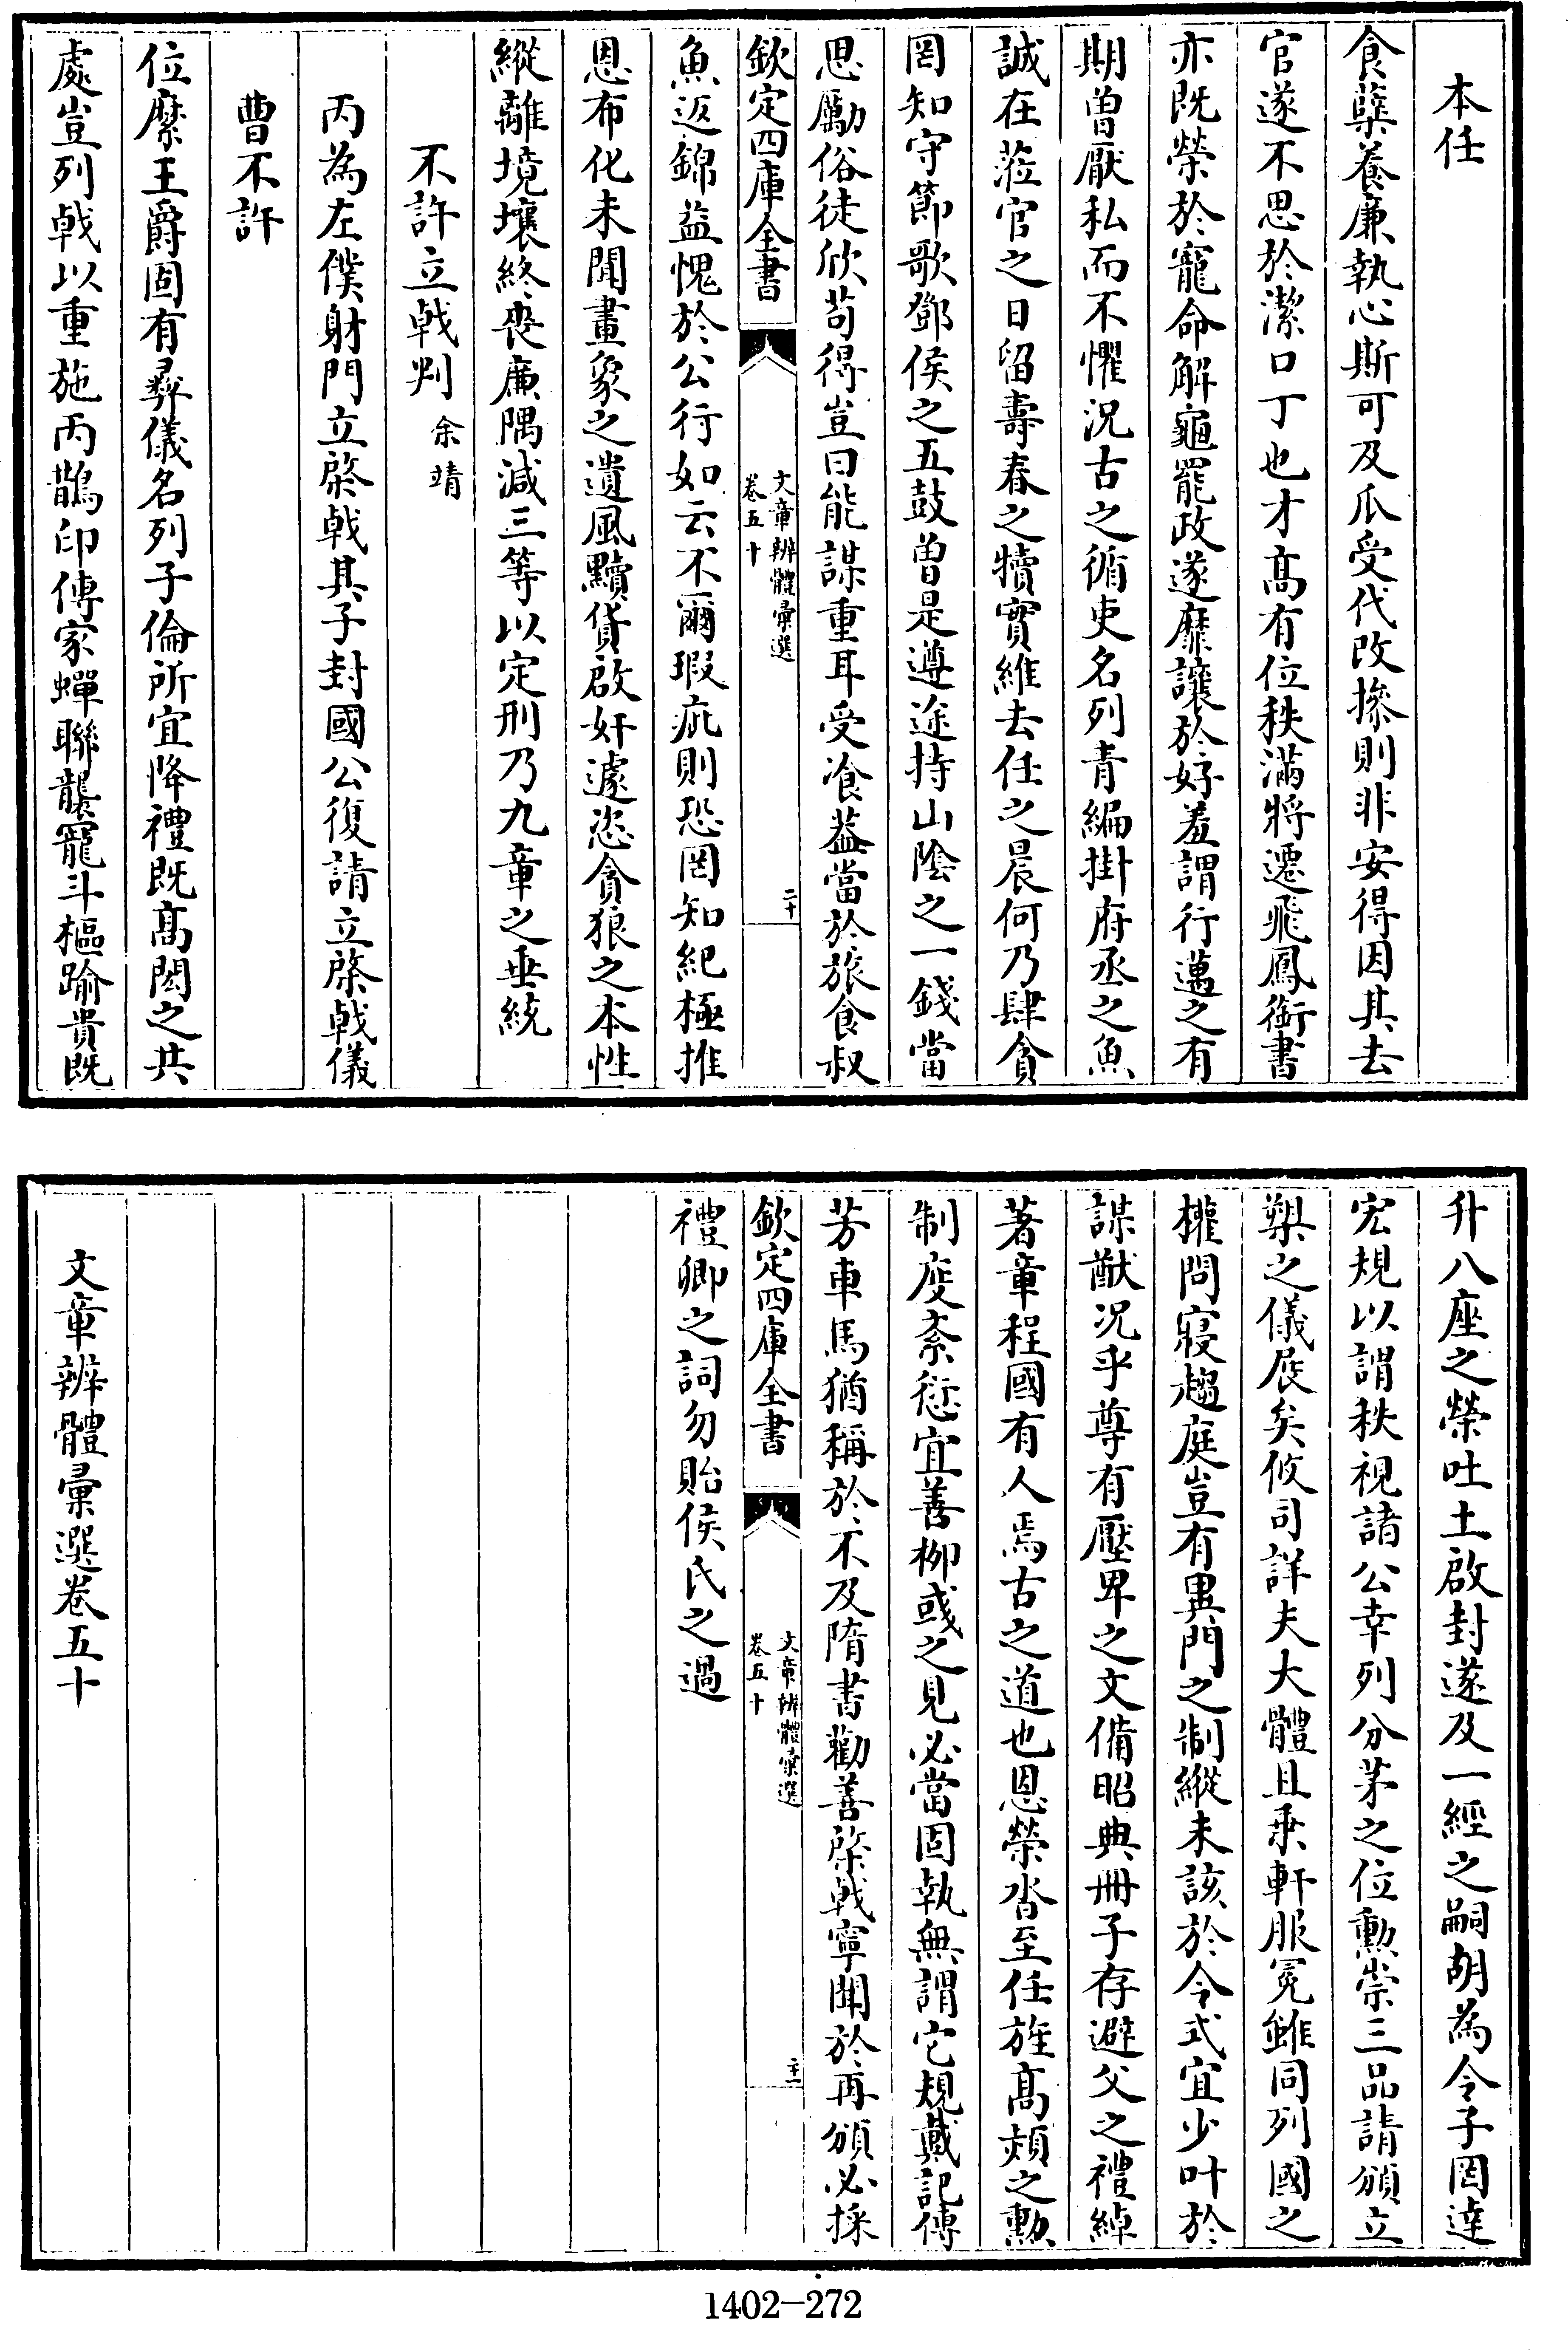 本任
食蘖養廉執心斯可及瓜受代改操則非安得因其去
官遂不思於潔口丁也才髙有位秩滿將遷飛鳳銜書
亦既榮於寵命解龜罷政遂靡讓於好羞謂行邁之有
期曽厭私而不懼況古之循吏名列青編掛府丞之魚
誠在蒞官之日留壽春之犢實維去任之晨何乃肆貪
罔知守節歌鄧侯之五鼓曽是遵途持山隂之一錢當
思勵俗徒欣茍得豈曰能謀重耳受飡葢當於旅食叔
欽定四庫全書
文章辨體彚選
卷五十
二十
魚返錦益愧於公行如云不爾瑕疵則恐罔知紀極推
恩布化未聞畫象之遺風黷貨啟奸遽恣貪狼之本性
縱離境壤終喪廉隅減三等以定刑乃九章之垂統
不許立戟判 余靖
丙為左僕射門立棨㦸其子封國公復請立棨㦸儀
曹不許
位縻王爵固有彛儀名列子倫所宜降禮既髙閎之共
處豈列㦸以重施丙鵲印傳家蟬聯襲寵斗樞踰貴既
升八座之榮吐土啟封遂及一經之嗣胡為令子罔逹
宏規以謂秩視諸公幸列分茅之位勲崇三品請頒立
槊之儀展矣攸司詳夫大體且乗軒服冕雖同列國之
權問寢趨庭豈有異門之制縱未該於令式宜少叶於
謀猷況乎尊有壓卑之文備昭典冊子存避父之禮綽
著章程國有人焉古之道也恩榮沓至任旌髙熲之勲
制度紊愆宜善栁彧之見必當固執無謂它規戴記傳
芳車馬猶稱於不及隋書勸善棨㦸寧聞於再頒必採
欽定四庫全書
文章辨體彚選
卷五十
二十一
禮卿之詞勿貽侯氏之過
文章辨體彚選卷五十
1402-272